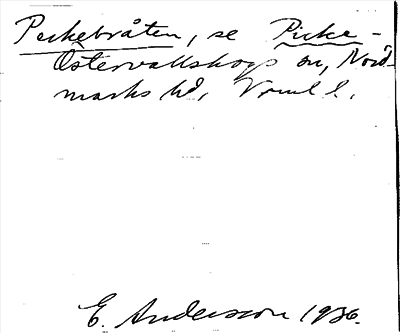 Peckebråten, se Picke-
Östervallskogs sn, Nord-
marks hd, Vrml l.
E. Andersson 1936.